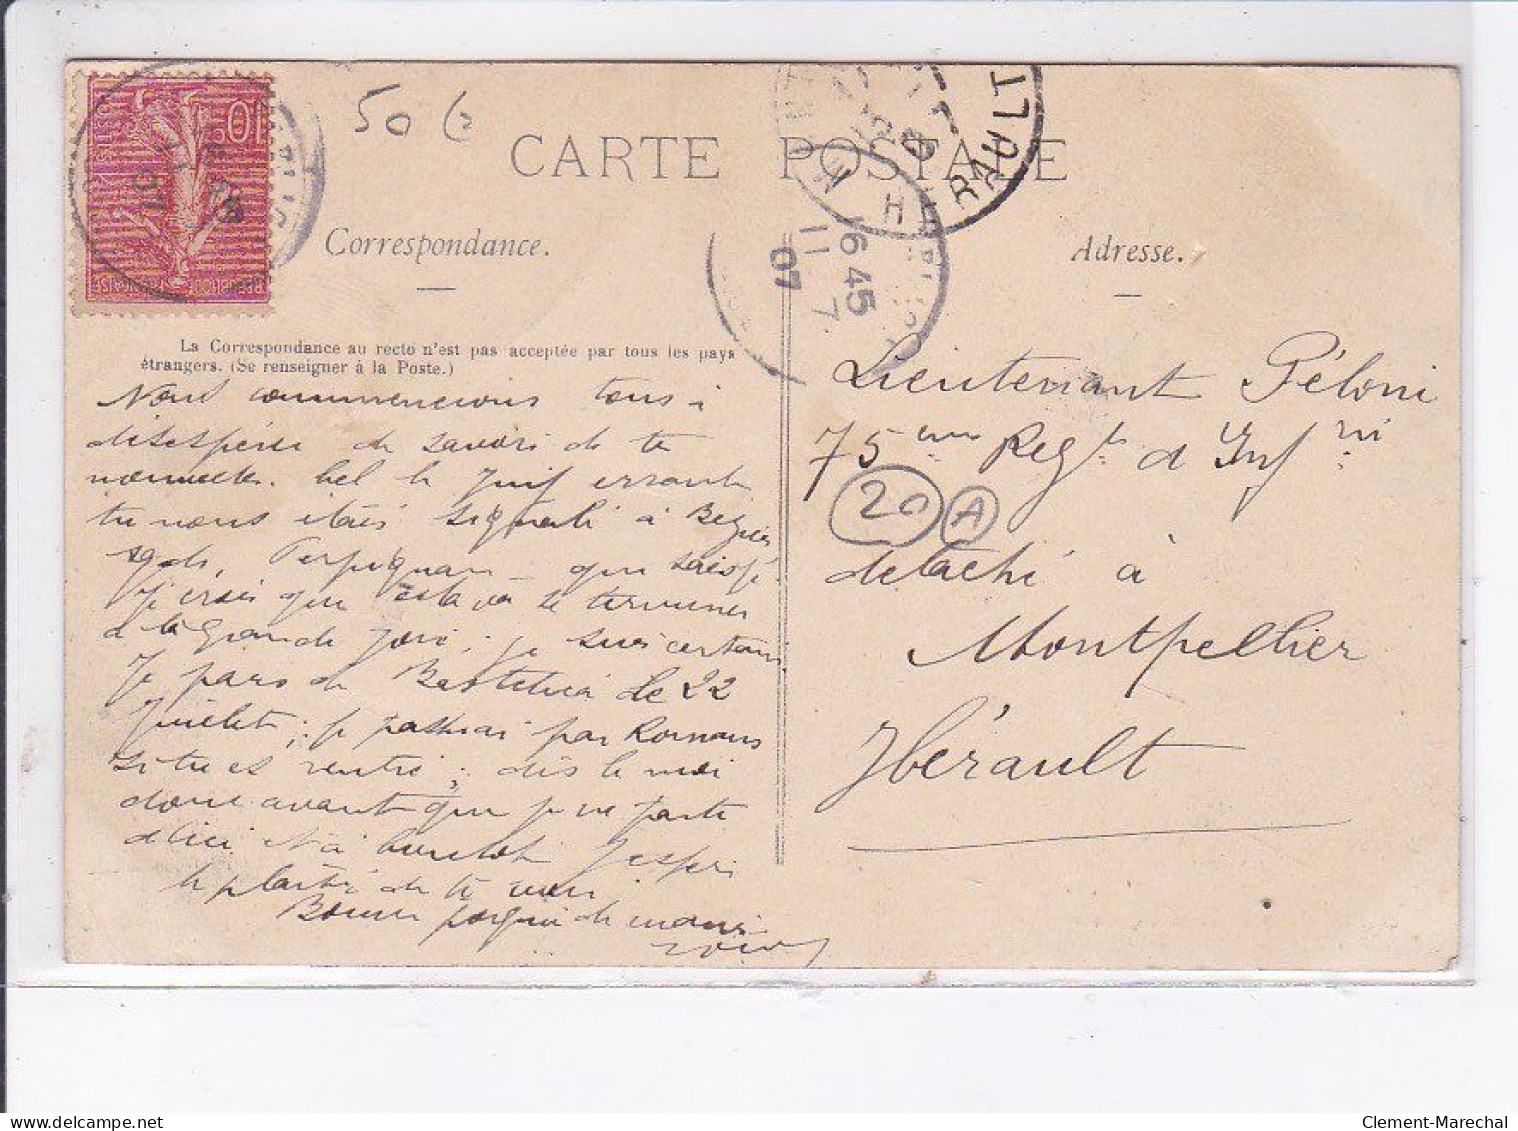 50 €
CARTE POSTALE
HÉRAULT
6 45
11 7
07
Correspondance.
Adresse.
La Correspondance au recto n'est pas acceptée par tous les pays
étrangers. (Se renseigner à la Poste.)
Nous commencions tous à
désespérer de savoir de tes
nouvelles. tel le Juif errant
tu nous étais signalé à Beziers
Agde, Perpignan – que sais-je
Je crois que cela va se terminer
à la grande joie, je suis certain
Je pars de le 22
Juillet; je passerai par Romans
si tu es rentré; dis le moi
donc avant que je ne parte
d'ici et à bientôt j'espère
le plaisir de te voir
Bonne poignée de mains
Lieutenant Péloni
75ème Regt d'Infrie
20 A
détaché à
Montpellier
Hérault
Clement-Marechal
Delcampe.net